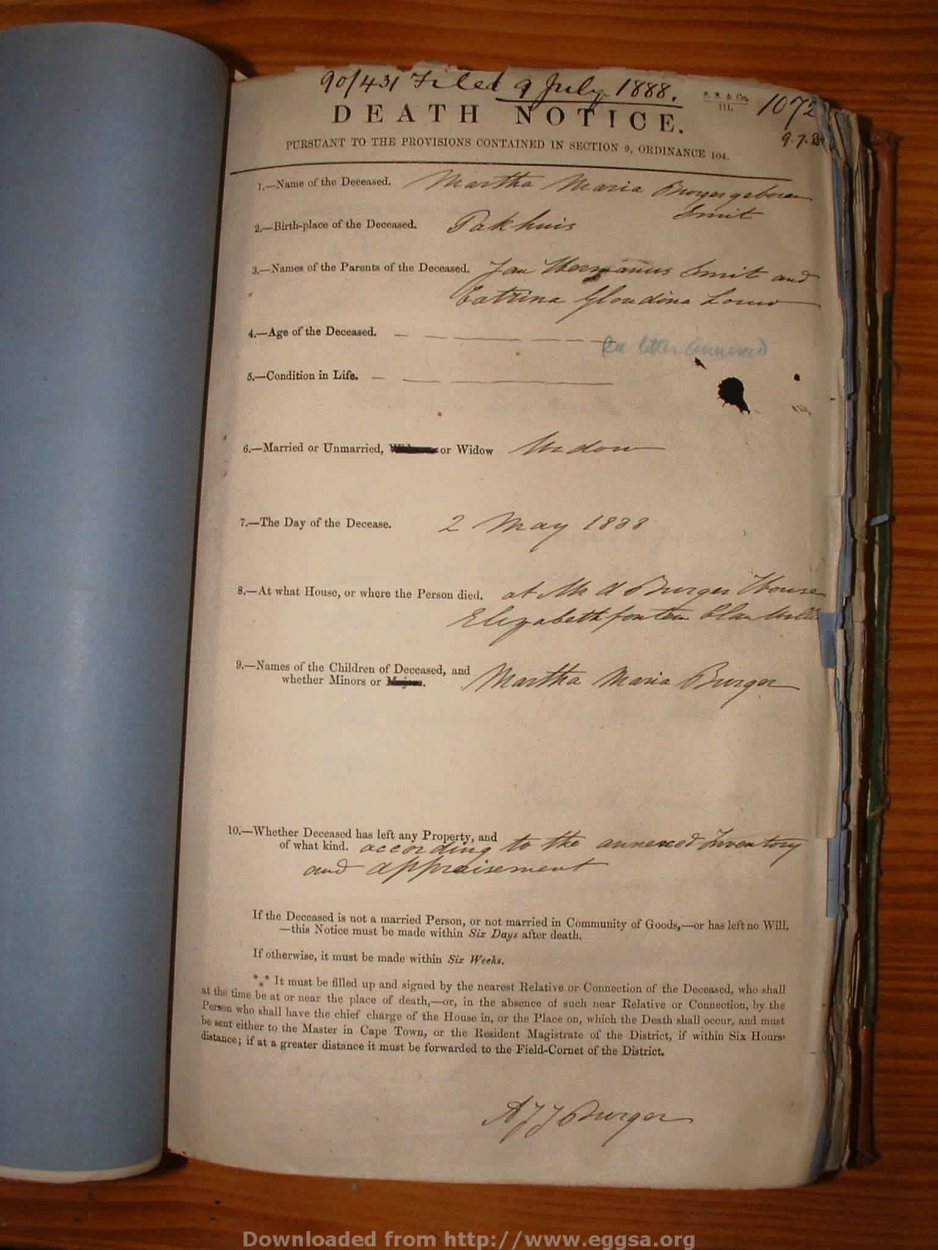 90/431 Filed 9 July 1888. 1072
9.7.88
DEATH NOTICE.
PURSUANT TO THE PROVISIONS CONTAINED IN SECTION 9, ORDINANCE 104.
1.—Name of the Deceased. Martha Maria Burger geboren
Smit
2.—Birth-place of the Deceased. Pakhuis
3.—Names of the Parents of the Deceased. Jan Hermanus Smit and
Catrina Gloudina Louw
4.—Age of the Deceased. annexed
5.—Condition in Life.
6.—Married or Unmarried, or Widow Widow
7.—The Day of the Decease. 2 May 1888
8.—At what House, or where the Person died. at Mr A Burger House
Elizabethfontein
9.—Names of the Children of Deceased, and
whether Minors or Majors. Martha Maria Burger
10.—Whether Deceased has left any Property, and
of what kind. according to the annexed Inventory
and appraisement
If the Deceased is not a married Person, or not married in Community of Goods,—or has left no Will,
—this Notice must be made within Six Days after death.
If otherwise, it must be made within Six Weeks.
*** It must be filled up and signed by the nearest Relative or Connection of the Deceased, who shall
at the time be at or near the place of death,—or, in the absence of such near Relative or Connection, by the
Person who shall have the chief charge of the House in, or the Place on, which the Death shall occur, and must
be sent either to the Master in Cape Town, or the Resident Magistrate of the District, if within Six Hours'
distance; if at a greater distance it must be forwarded to the Field-Cornet of the District.
A J J Burger
Downloaded from http://www.eggsa.org